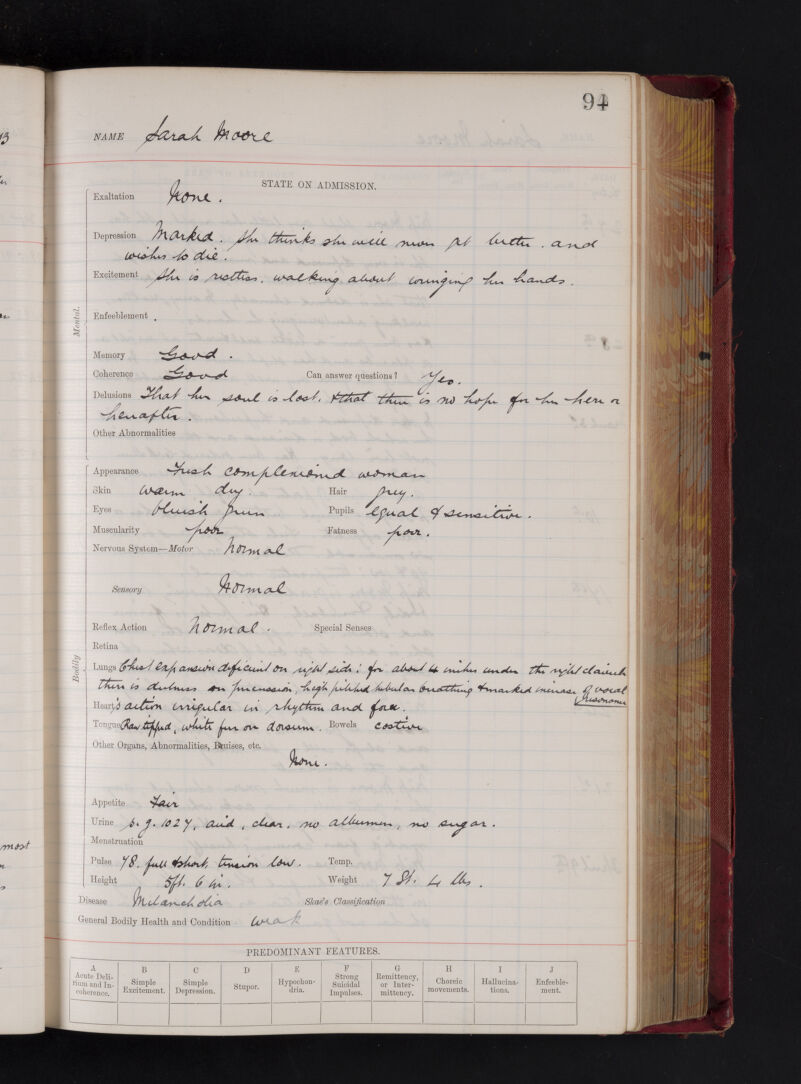 94
NAME Sarah Moore
STATE ON ADMISSION.
Mental.
Exaltation None.
Depression Marked. She thinks she will never get better. and
wishes to die.
Excitement She is restless. walking about wringing her hands.
Enfeeblement .
Memory Good.
Coherence Good Can answer questions? Yes.
Delusions That her soul is lost. & that there is no hope for her here or
hereafter.
Other Abnormalities
Bodily
Appearance Fresh complexioned woman
Skin warm dry. Hair grey.
Eyes bluish green Pupils equal & sensitive.
Muscularity poor Fatness poor.
Nervous System—Motor Normal
Sensory Normal
Reflex Action Normal. Special Senses
Retina
Lungs Chest expansion deficient on right side: for about 4 inches under the right clavicle
there is dulness on percussion, high pitched tubular breathing & marked increase of vocal
resonance
Heart's action irregular in rhythm and force.
Tongue Raw tipped, white fur on dorsum. Bowels costive
Other Organs, Abnormalities, Bruises, etc.
None.
Appetite Fair
Urine s.g. 1027, acid, clear, no albumen, no sugar.
Menstruation
Pulse 78. full & short, tension low. Temp.
Height 5ft. 6 in. Weight 7 St. 4 lbs.
Disease Melancholia Skae's Classification
General Bodily Health and Condition weak
PREDOMINANT FEATURES.
A Acute Delirium and Incoherence.
B Simple Excitement.
C Simple Depression.
D Stupor.
E Hypochondria.
F Strong Suicidal Impulses.
G Remittency, or Intermittency.
H Choreic movements.
I Hallucinations.
J Enfeeblement.